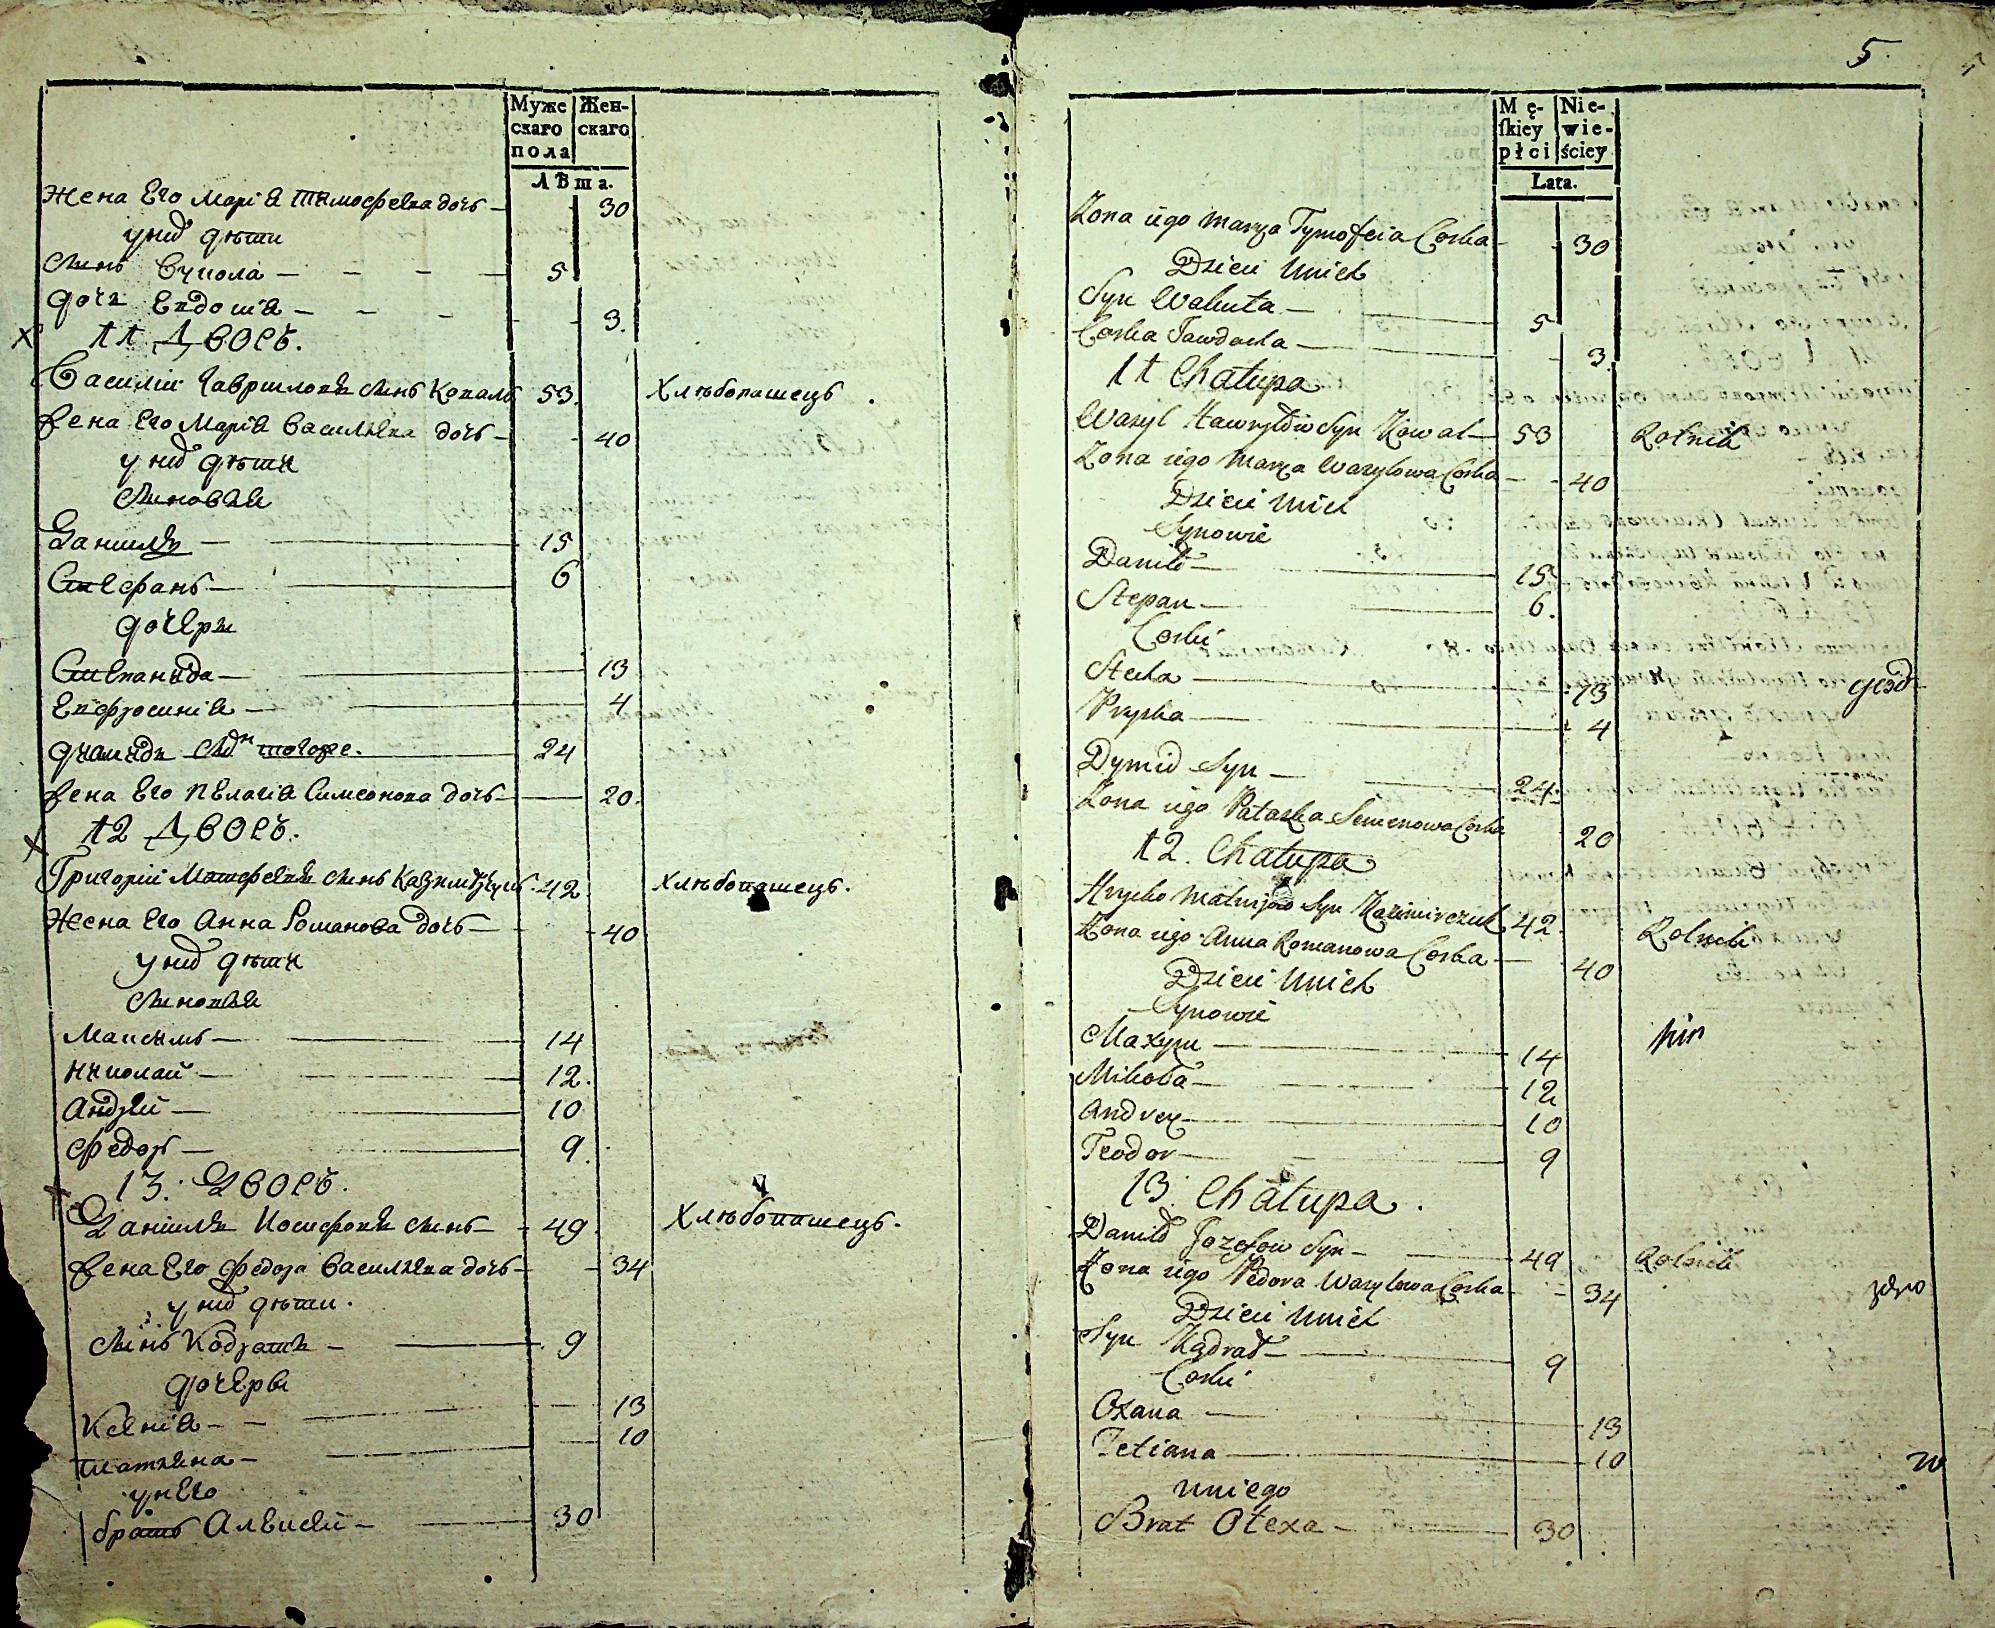 Муже
скаго
пола
Жен-
скаго
Лѣта.
Жена Его Марія Тимофеева дочь — 30
у них дѣти
Синъ Вукола — 5
дочь Евдокія — 3.
11 Дворъ.
Василій Гавриловъ синъ Коваль 53. Хлѣбопашецъ.
Жена Его Марія Василева дочь — 40
у них дѣти
Синовья
Данило — 15
Стефанъ — 6
дочери
Степанида — 13
Евфросинія — 4
синъ тогоже. 24
Жена Его Пелагія Симеонова дочь — 20.
12 Дворъ.
Григорій Матфеевъ синъ 42. Хлѣбопашецъ.
Жена Его Анна Романова дочь — 40
у них дѣти
Синовья
Максимъ — 14
Николай — 12.
Андрей — 10
Федоръ — 9.
13. Дворъ.
Даніилъ Иосифовъ синъ — 49. Хлѣбопашецъ.
Жена Его Федора Василева дочь — 34
у них дѣти.
Синъ Кодратъ — 9
дочери
Ксенія — 13
Татіана — 10
у него
братъ Алексей — 30
5
Mę-
ſkiey
płci
Nie-
wie-
ściey
Lata.
Zona iego Marya Tymofeia Corka — 30
Dzieci Unich
Syn Wakuła — 5
Corka Jawdocha — 3.
11 Chałupa
Wasyl Hawryłow Syn Kowal — 53 Rolnik
Zona iego Marya Wasylowa Corka — 40
Dzieci Unich
Synowie
Daniło — 15
Stepan — 6.
Corki
Stecha — 13
Pryska — 4
Dymid Syn — 24.
Zona iego Pałaszka Semenowa Corka 20
12. Chałupa
Hryćko Matwijow Syn Kazimirczuk 42. Rolnik
Zona iego Anna Romanowa Corka — 40
Dzieci Unich
Synowie
Maxym — 14
Mikoła — 12
Andrey — 10
Teodor — 9
13. Chałupa.
Daniło Jozefow Syn — 49 Rolnik
Zona iego Fedora Wasylowa Corka — 34
Dzieci Unich
Syn Kądrat — 9
Corki
Oxana — 13
Tetiana — 10
Uniego
Brat Ołexa — 30